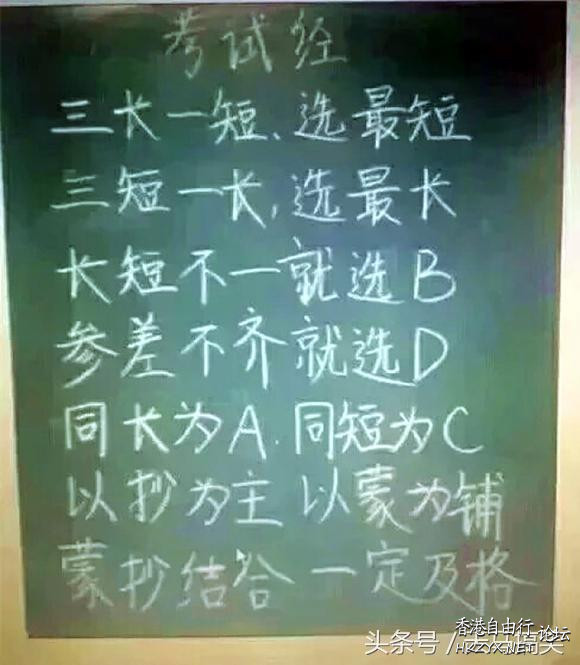 考试经
三长一短、选最短
三短一长,选最长
长短不一就选B
参差不齐就选D
同长为A.同短为C
以抄为主 以蒙为铺
蒙抄结合 一定及格
香港自由行论坛
头条号/
HKZYX.NET